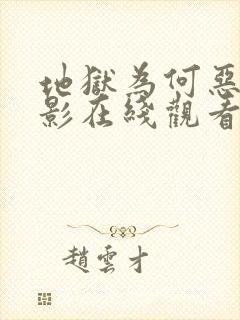 地獄為何惡
影在綫觀看
趙雲才